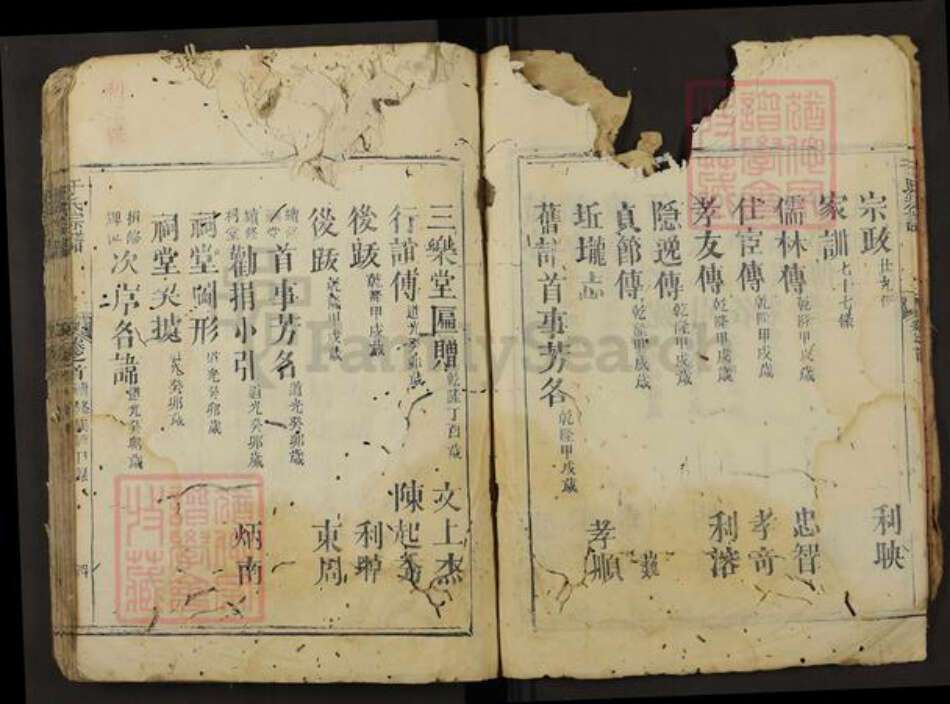 宗政 廿九條 利映
家訓 七十七條
儒林傳 乾隆甲戌歲 忠智
仕宦傳 乾隆甲戌歲 孝奇
孝友傳 乾隆甲戌歲 利溶
隱逸傳 乾隆甲戌歲
貞節傳 乾隆甲戌歲
坵壠志 孝順
舊譜首事芳名 乾隆甲戌歲
三樂堂匾贈 乾隆丁酉歲 文上杰
行誼傳 道光癸卯歲 陳起
後跋 乾隆甲戌歲 利
後跋 乾隆甲戌歲 東周
續修 首事芳名 道光癸卯歲
續修祠堂 勸捐小引 道光癸卯歲 炳南
祠堂圖形 道光癸卯歲
祠堂 道光癸卯歲
捐 次序名諱 道光癸卯歲
FamilySearch